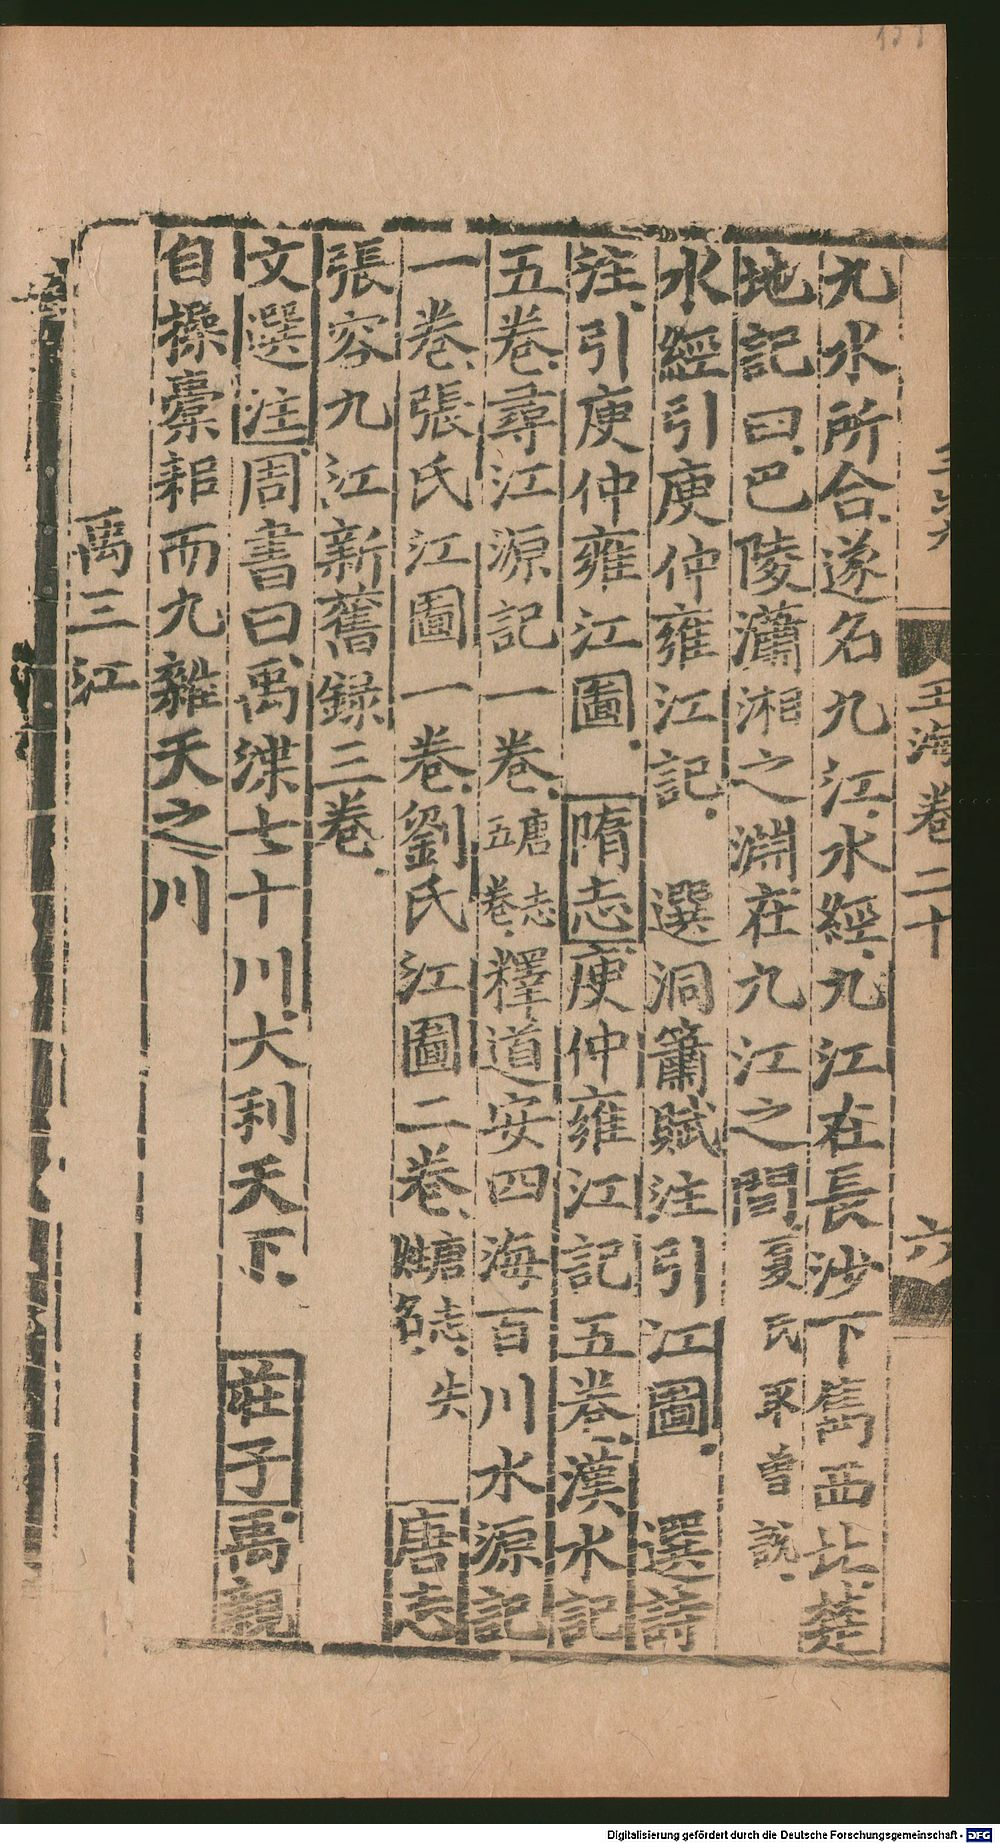 九水所合遂名九江水經九江在長沙下雋西北楚
地記曰巴陵瀟湘之淵在九江之間夏氏
水經引庾仲雍江記　選洞簫賦注引江圖　選詩
注引庾仲雍江圖　隋志庾仲雍江記五卷漢水記
五卷尋江源記一卷唐志五卷釋道安四海百川水源記
一卷張氏江圖一卷劉氏江圖二卷　唐志
張容九江新舊録三卷
文選注周書曰禹渫七十川大利天下　莊子禹親
自操橐耜而九雜天之川
禹三江
玉海卷二十
六
Digitalisierung gefördert durch die Deutsche Forschungsgemeinschaft - DFG